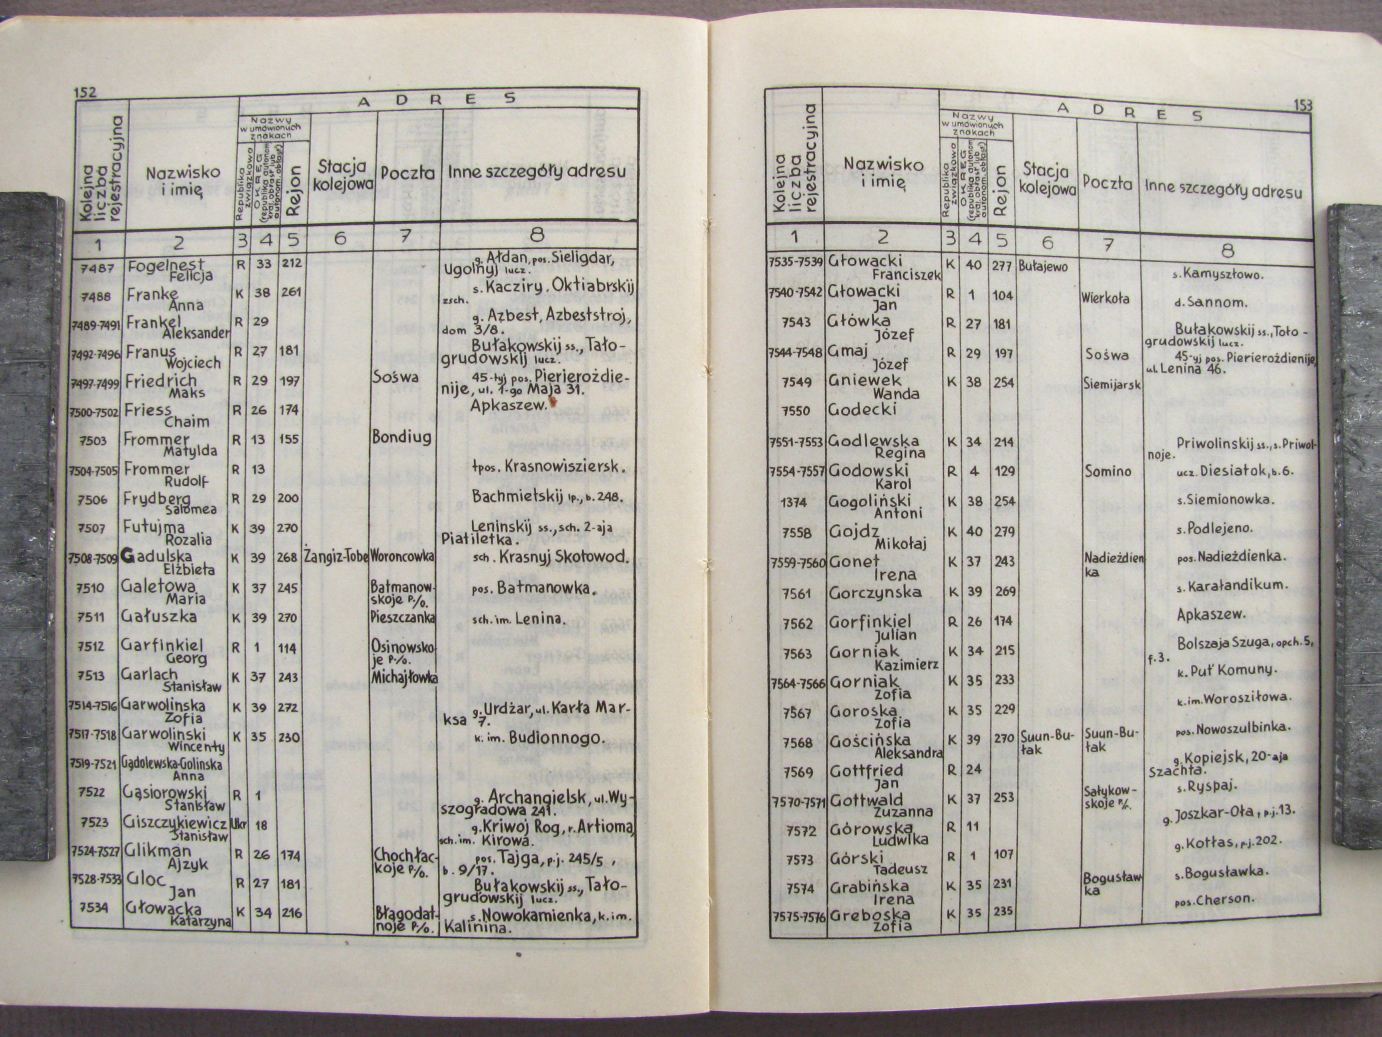 152
A D R E S
Kolejna liczba rejestracyjna
Nazwisko i imię
Nazwy w umówionych znakach
Republika związkowa
OKRĘG (republika autonom. kraj, obłast' lub autonom. obłast')
Rejon
Stacja kolejowa
Poczta
Inne szczegóły adresu
1 2 3 4 5 6 7 8
7487 Fogelnest Felicja R 33 212 g. Ałdan, pos. Sieligdar, Ugolnyj lucz.
7488 Franke Anna K 38 261 s. Kacziry, Oktiabrskij zsch.
7489-7491 Frankel Aleksander R 29 g. Azbest, Azbeststroj, dom 3/8.
7492-7496 Franus Wojciech R 27 181 Bułakowskij ss., Tało-grudowskij lucz.
7497-7499 Friedrich Maks R 29 197 Sośwa 45-tyj pos. Pierierożdie-nije, ul. 1-go Maja 31.
7500-7502 Friess Chaim R 26 174 Apkaszew.
7503 Frommer Matylda R 13 155 Bondiug
7504-7505 Frommer Rudolf R 13 łpos. Krasnowisziersk.
7506 Frydberg Salomea R 29 200 Bachmietskij lp., b. 248.
7507 Futujma Rozalia K 39 270 Leninskij ss., sch. 2-aja Piatiletka.
7508-7509 Gadulska Elżbieta K 39 268 Żangiz-Tobe Woroncowka sch. Krasnyj Skotowod.
7510 Galetowa Maria K 37 245 Batmanow-skoje p/o. pos. Batmanowka.
7511 Gałuszka K 39 270 Pieszczanka sch. im. Lenina.
7512 Garfinkiel Georg R 1 114 Osinowsko-je p/o.
7513 Garlach Stanisław K 37 243 Michajłowka
7514-7516 Garwolinska Zofia K 39 272 g. Urdżar, ul. Karła Mar-ksa 7.
7517-7518 Garwolinski Wincenty K 35 230 k. im. Budionnogo.
7519-7521 Gądolewska-Golinska Anna
7522 Gąsiorowski Stanisław R 1 g. Archangielsk, ul. Wy-szogradowa 241.
7523 Giszczykiewicz Stanisław Ukr 18 g. Kriwoj Rog, r. Artioma, sch. im. Kirowa.
7524-7527 Glikman Ajzyk R 26 174 Chochłac-koje p/o. pos. Tajga, p.j. 245/5, b. 9/17.
7528-7533 Gloc Jan R 27 181 Bułakowskij ss., Tało-grudowskij lucz.
7534 Głowacka Katarzyna K 34 216 Błagodat-noje p/o. s. Nowokamienka, k. im. Kalinina.
153
A D R E S
Kolejna liczba rejestracyjna
Nazwisko i imię
Nazwy w umówionych znakach
Republika związkowa
OKRĘG (republika autonom. kraj, obłast' lub autonom. obłast')
Rejon
Stacja kolejowa
Poczta
Inne szczegóły adresu
1 2 3 4 5 6 7 8
7535-7539 Głowacki Franciszek K 40 277 Bułajewo s. Kamyszłowo.
7540-7542 Głowacki Jan R 1 104 Wierkoła d. Sannom.
7543 Główka Józef R 27 181 Bułakowskij ss., Toto-grudowskij lucz.
7544-7548 Gmaj Józef R 29 197 Sośwa 45-yj pos. Pierierożdienije, ul. Lenina 46.
7549 Gniewek Wanda K 38 254 Siemijarsk
7550 Godecki
7551-7553 Godlewska Regina K 34 214 Priwolinskij ss., s. Priwol-noje.
7554-7557 Godowski Karol R 4 129 Somino ucz. Diesiatok, b. 6.
1374 Gogoliński Antoni K 38 254 s. Siemionowka.
7558 Gojdz Mikołaj K 40 279 s. Podlejeno.
7559-7560 Gonet Irena K 37 243 Nadieżdien ka pos. Nadieżdienka.
7561 Gorczynska K 39 269 s. Karałandikum.
7562 Gorfinkiel Julian R 26 174 Apkaszew.
7563 Gorniak Kazimierz K 34 215 Bolszaja Szuga, opch. 5, f. 3.
7564-7566 Gorniak Zofia K 35 233 k. Put' Komuny.
7567 Goroska Zofia K 35 229 k. im. Woroszłowa.
7568 Gościńska Aleksandra K 39 270 Suun-Bu-łak Suun-Bu-łak pos. Nowoszulbinka.
7569 Gottfried Jan R 24 g. Kopiejsk, 20-aja Szachta.
7570-7571 Gottwald Zuzanna K 37 253 Sałykow-skoje p/o. s. Ryspaj.
7572 Górowska Ludwika R 11 g. Joszkar-Oła, p.j. 13.
7573 Górski Tadeusz R 1 107 g. Kotłas, p.j. 202.
7574 Grabińska Irena K 35 231 Bogusław ka s. Bogusławka.
7575-7576 Greboska Zofia K 35 235 pos. Cherson.